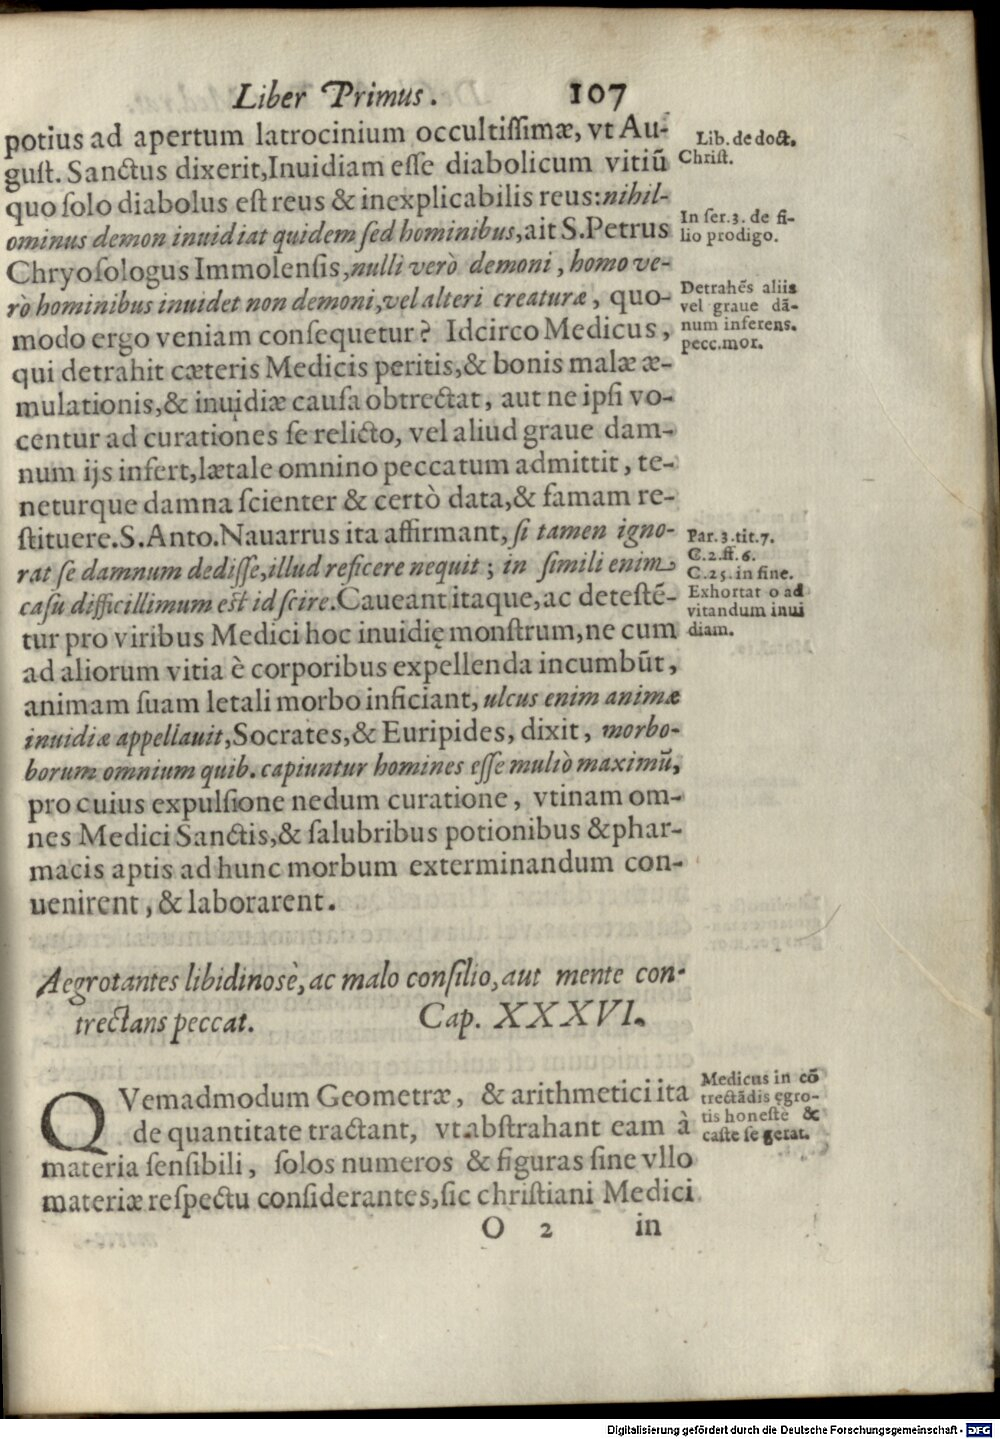 Liber Primus. 107
potius ad apertum latrocinium occultissimæ, vt Au-
gust. Sanctus dixerit, Inuidiam esse diabolicum vitiũ
quo solo diabolus est reus & inexplicabilis reus: nihil-
ominus demon inuidiat quidem sed hominibus, ait S. Petrus
Chrysologus Immolensis, nulli verò demoni, homo ve-
rò hominibus inuidet non demoni, vel alteri creaturæ, quo-
modo ergo veniam consequetur? Idcirco Medicus,
qui detrahit cæteris Medicis peritis, & bonis malæ æ-
mulationis, & inuidiæ causa obtrectat, aut ne ipsi vo-
centur ad curationes se relicto, vel aliud graue dam-
num ijs infert, lætale omnino peccatum admittit, te-
neturque damna scienter & certò data, & famam re-
stituere. S. Anto. Nauarrus ita affirmant, si tamen igno-
rat se damnum dedisse, illud reficere nequit; in simili enim
casu difficillimum est id scire. Caueant itaque, ac detestē-
tur pro viribus Medici hoc inuidię monstrum, ne cum
ad aliorum vitia è corporibus expellenda incumbũt,
animam suam letali morbo inficiant, ulcus enim animæ
inuidiæ appellauit, Socrates, & Euripides, dixit, morbo-
borum omnium quib. capiuntur homines esse multò maximũ,
pro cuius expulsione nedum curatione, vtinam om-
nes Medici Sanctis, & salubribus potionibus & phar-
macis aptis ad hunc morbum exterminandum con-
uenirent, & laborarent.
Lib. de doct.
Christ.
In ser. 3. de fi-
lio prodigo.
Detrahẽs aliis
vel graue dã-
num inferens.
pecc. mor.
Par. 3. tit. 7.
C. 2. ff. 6.
C. 25. in fine.
Exhortat o ad
vitandum inui
diam.
Aegrotantes libidinosè, ac malo consilio, aut mente con-
trectans peccat. Cap. XXXVI.
QVemadmodum Geometræ, & arithmetici ita
de quantitate tractant, vt abstrahant eam à
materia sensibili, solos numeros & figuras sine vllo
materiæ respectu considerantes, sic christiani Medici
Medicus in cõ
trectãdis ęgro-
tis honeste &
caste se gerat.
O 2 in
Digitalisierung gefördert durch die Deutsche Forschungsgemeinschaft - DFG